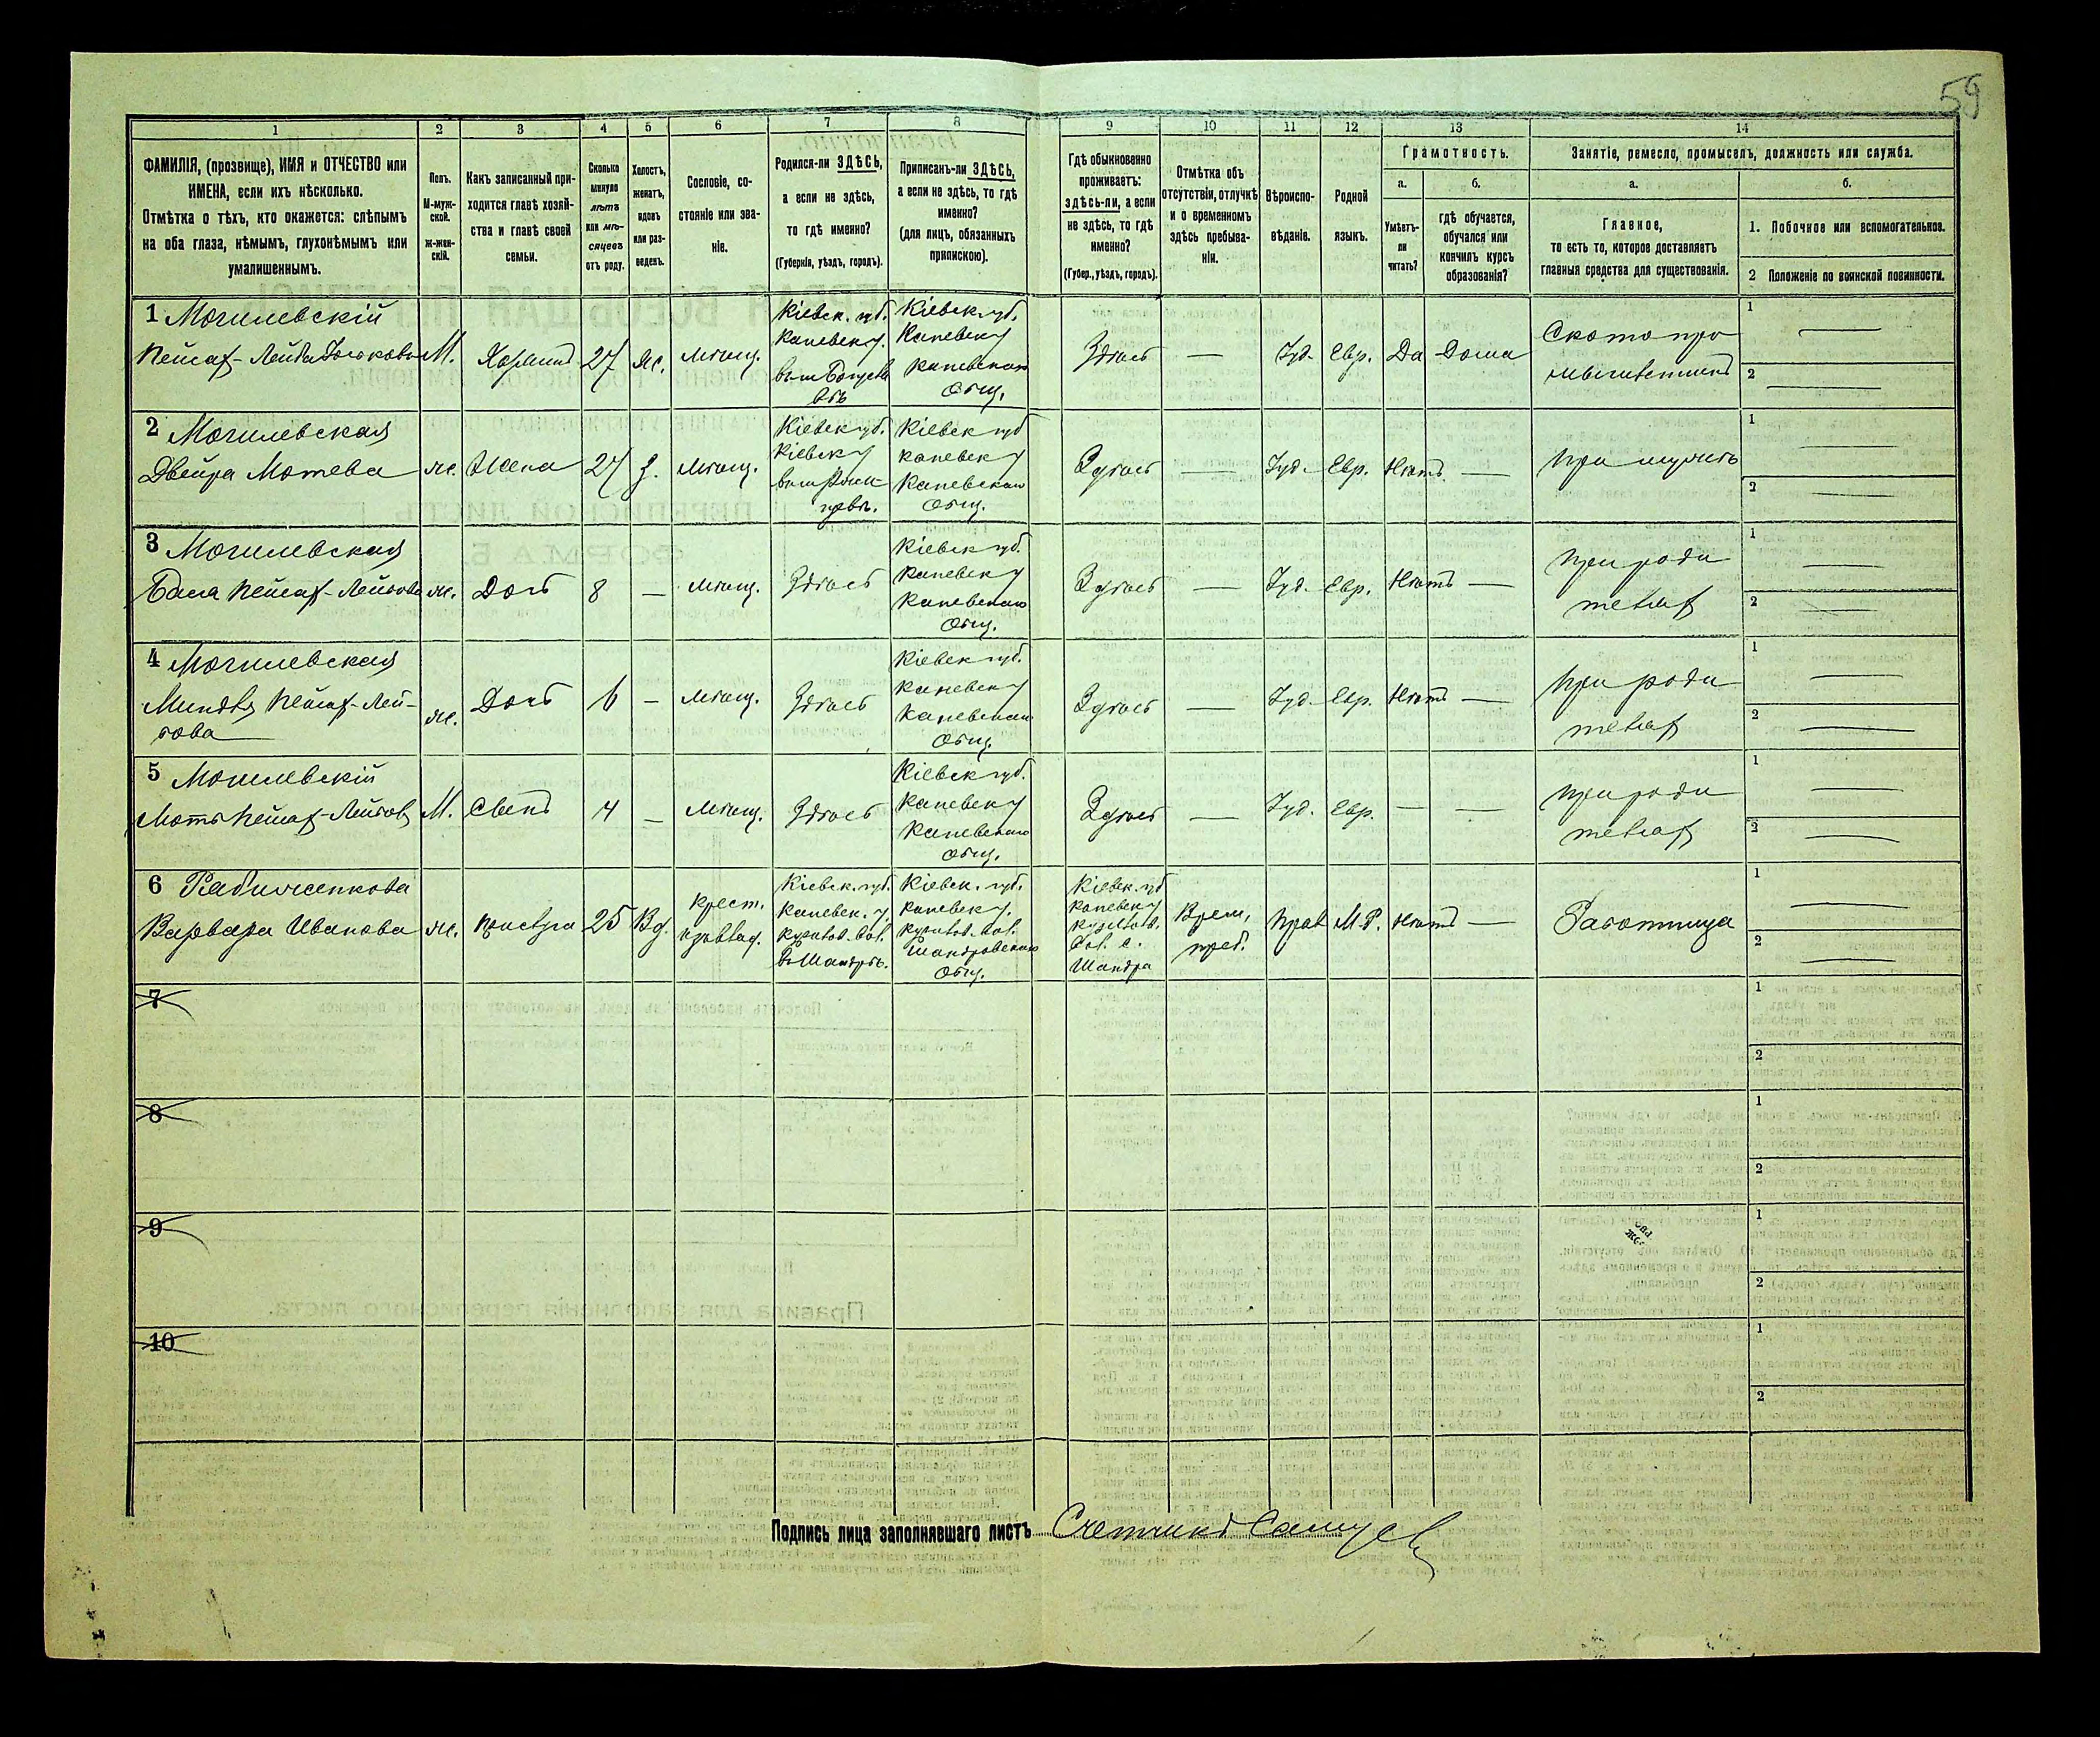 59
1 2 3 4 5 6 7 8 9 10 11 12 13 14
ФАМИЛІЯ, (прозвище), ИМЯ и ОТЧЕСТВО или
ИМЕНА, если ихъ нѣсколько.
Отмѣтка о тѣхъ, кто окажется: слѣпымъ
на оба глаза, нѣмымъ, глухонѣмымъ или
умалишеннымъ.
Полъ.
М-муж-
ской.
ж-жен-
скій.
Какъ записанный при-
ходится главѣ хозяй-
ства и главѣ своей
семьи.
Сколько
минуло
лѣтъ
или мѣ-
сяцевъ
отъ роду.
Холостъ,
женатъ,
вдовъ
или раз-
веденъ.
Сословіе, со-
стояніе или зва-
ніе.
Родился-ли ЗДѢСЬ,
а если не здѣсь,
то гдѣ именно?
(Губернія, уѣздъ, городъ).
Приписанъ-ли ЗДѢСЬ,
а если не здѣсь, то гдѣ
именно?
(для лицъ, обязанныхъ
припискою).
Гдѣ обыкновенно
проживаетъ:
здѣсь-ли, а если
не здѣсь, то гдѣ
именно?
(Губер., уѣздъ, городъ).
Отмѣтка объ
отсутствіи, отлучкѣ
и о временномъ
здѣсь пребыва-
ніи.
Вѣроиспо-
вѣданіе.
Родной
языкъ.
Грамотность.
а.
Умѣетъ-
ли
читать?
б.
гдѣ обучается,
обучался или
кончилъ курсъ
образованія?
Занятіе, ремесло, промыселъ, должность или служба.
а.
Главное,
то есть то, которое доставляетъ
главныя средства для существованія.
б.
1. Побочное или вспомогательное.
2 Положеніе по воинской повинности.
1 Могилевскій
Пейсах-Лейба
М.
27
ж.
мѣщ.
Кіевск. губ.
Каневск у.
Кіевск. губ.
Каневск у
Каневскаго
Общ.
Здѣсь
—
Іуд.
Евр.
Да
Дома
Ското про
мышленникъ
1 —
2 —
2 Могилевская
Двейра Мотева
ж.
Жена
27
З.
мѣщ.
Кіевск губ.
Кіевск у
Кіевск губ
Каневск у
Каневскаго
Общ.
Здѣсь
—
Іуд.
Евр.
Нѣтъ
—
При мужѣ
1 —
2 —
3 Могилевская
Бася Пейсах-Лейбова
ж.
Дочь
8
—
мѣщ.
Здѣсь
Кіевск губ.
Каневск у
Каневскаго
Общ.
Здѣсь
—
Іуд.
Евр.
Нѣтъ
—
При роди
телях
1 —
2 —
4 Могилевская
Миндля Пейсах-Лей-
бова
ж.
Дочь
6
—
мѣщ.
Здѣсь
Кіевск губ.
Каневск у
Каневскаго
Общ.
Здѣсь
—
Іуд.
Евр.
Нѣтъ
—
При роди
телях
1 —
2 —
5 Могилевскій
Мотя Пейсах-Лейбов
М.
Сынъ
4
—
мѣщ.
Здѣсь
Кіевск губ.
Каневск у
Каневскаго
Общ.
Здѣсь
—
Іуд.
Евр.
—
—
При роди
телях
1 —
2 —
6
Варвара Иванова
ж.
Прислуга
25
Вд.
Крест.
Кіевск. губ.
Каневск. у.
вол.
Кіевск. губ.
Каневск у.
вол.
Шандровскаго
Общ.
Кіевск. губ
Каневск у
вол. с.
Шандра
Врем.
преб.
Прав
М.Р.
Нѣтъ
—
Работница
1 —
2 —
7
1
2
8
1
2
9
1
2
10
1
2
Подпись лица заполнявшаго листъ Счетчикъ